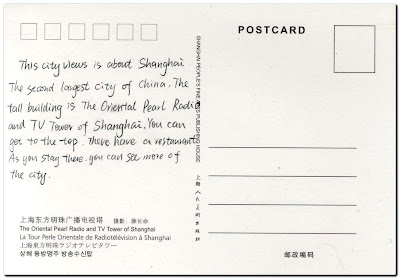 POSTCARD
This city views is about Shanghai.
The second largest city of China. The
tall building is The Oriental Pearl Radio
and TV Tower of Shanghai. You can
get to the top. There have a restaurant
As you stay there. you can see more of
the city.
SHANGHAI PEOPLE'S FINE ARTS PUBLISHING HOUSE
上海人民美術出版社
上海东方明珠广播电视塔 摄影：薛长命
The Oriental Pearl Radio and TV Tower of Shanghai
La Tour Perle Orientale de Radiotélévision à Shanghai
上海東方明珠ラジオテレビタワー
상해 동방명주 방송수신탑
邮政编码